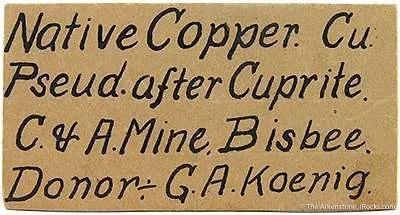 Native Copper. Cu.
Pseud. after Cuprite.
C. & A. Mine, Bisbee.
Donor:- G. A. Koenig.
© The Arkenstone, iRocks.com